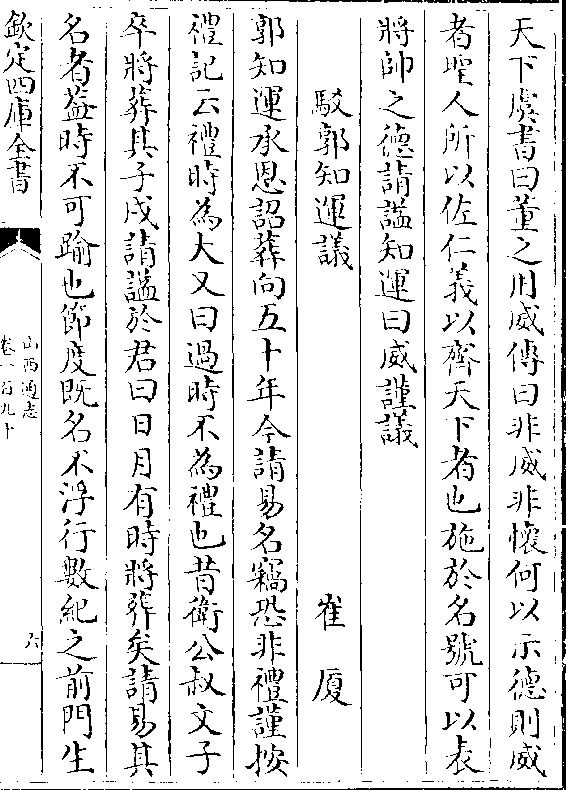 天下虞書曰董之用威傳曰非威非懷何以示德則威
者聖人所以佐仁義以齊天下者也施於名號可以表
將帥之德請諡知運曰威謹議
駁郭知運議　崔厦
郭知運承恩詔葬向五十年今請易名竊恐非禮謹按
禮記云禮時為大又曰過時不為禮也昔衛公叔文子
卒將葬其子戍請諡於君曰日月有時將葬矣請易其
名者葢時不可踰也節度既名不浮行數紀之前門生
欽定四庫全書
山西通志
卷一百九十
六